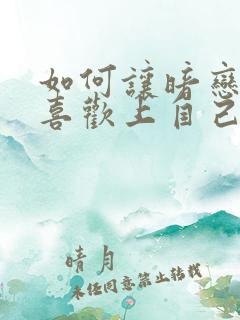 如何讓暗戀
喜歡上自己
晴月
未經同意禁止轉載